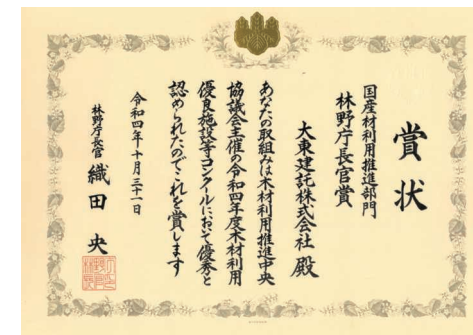 賞状
国産材利用推進部門
林野庁長官賞
大東建託株式会社 殿
あなたの取組みは木材利用推進中央
協議会主催の令和四年度木材利用
優良施設等コンクールにおいて優秀と
認められたのでこれを賞します
令和四年十月三十一日
林野庁長官 織田 央